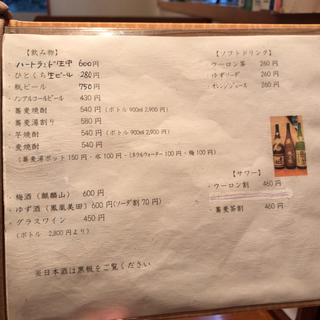 【飲み物】
・ハートランド生中 600円
・ひとくち生ビール 280円
・瓶ビール 750円
・ノンアルコールビール 430円
・蕎麦焼酎 540円 (ボトル 900ml 2,900円)
・蕎麦湯割り 580円
・芋焼酎 540円 (ボトル 900ml 2,900円)
・麦焼酎 540円
(蕎麦湯ポット 150円・氷 100円・ミネラルウォーター 100円・梅 100円)
・梅酒 (麒麟山) 600円
・ゆず酒 (鳳凰美田) 600円 (ソーダ割 70円)
・グラスワイン 450円
(ボトル 2,800円より)
※日本酒は黒板をご覧ください
【ソフトドリンク】
・ウーロン茶 260円
・ゆずソーダ 260円
・オレンジジュース 260円
【サワー】
・ウーロン割 460円
・蕎麦茶割 460円